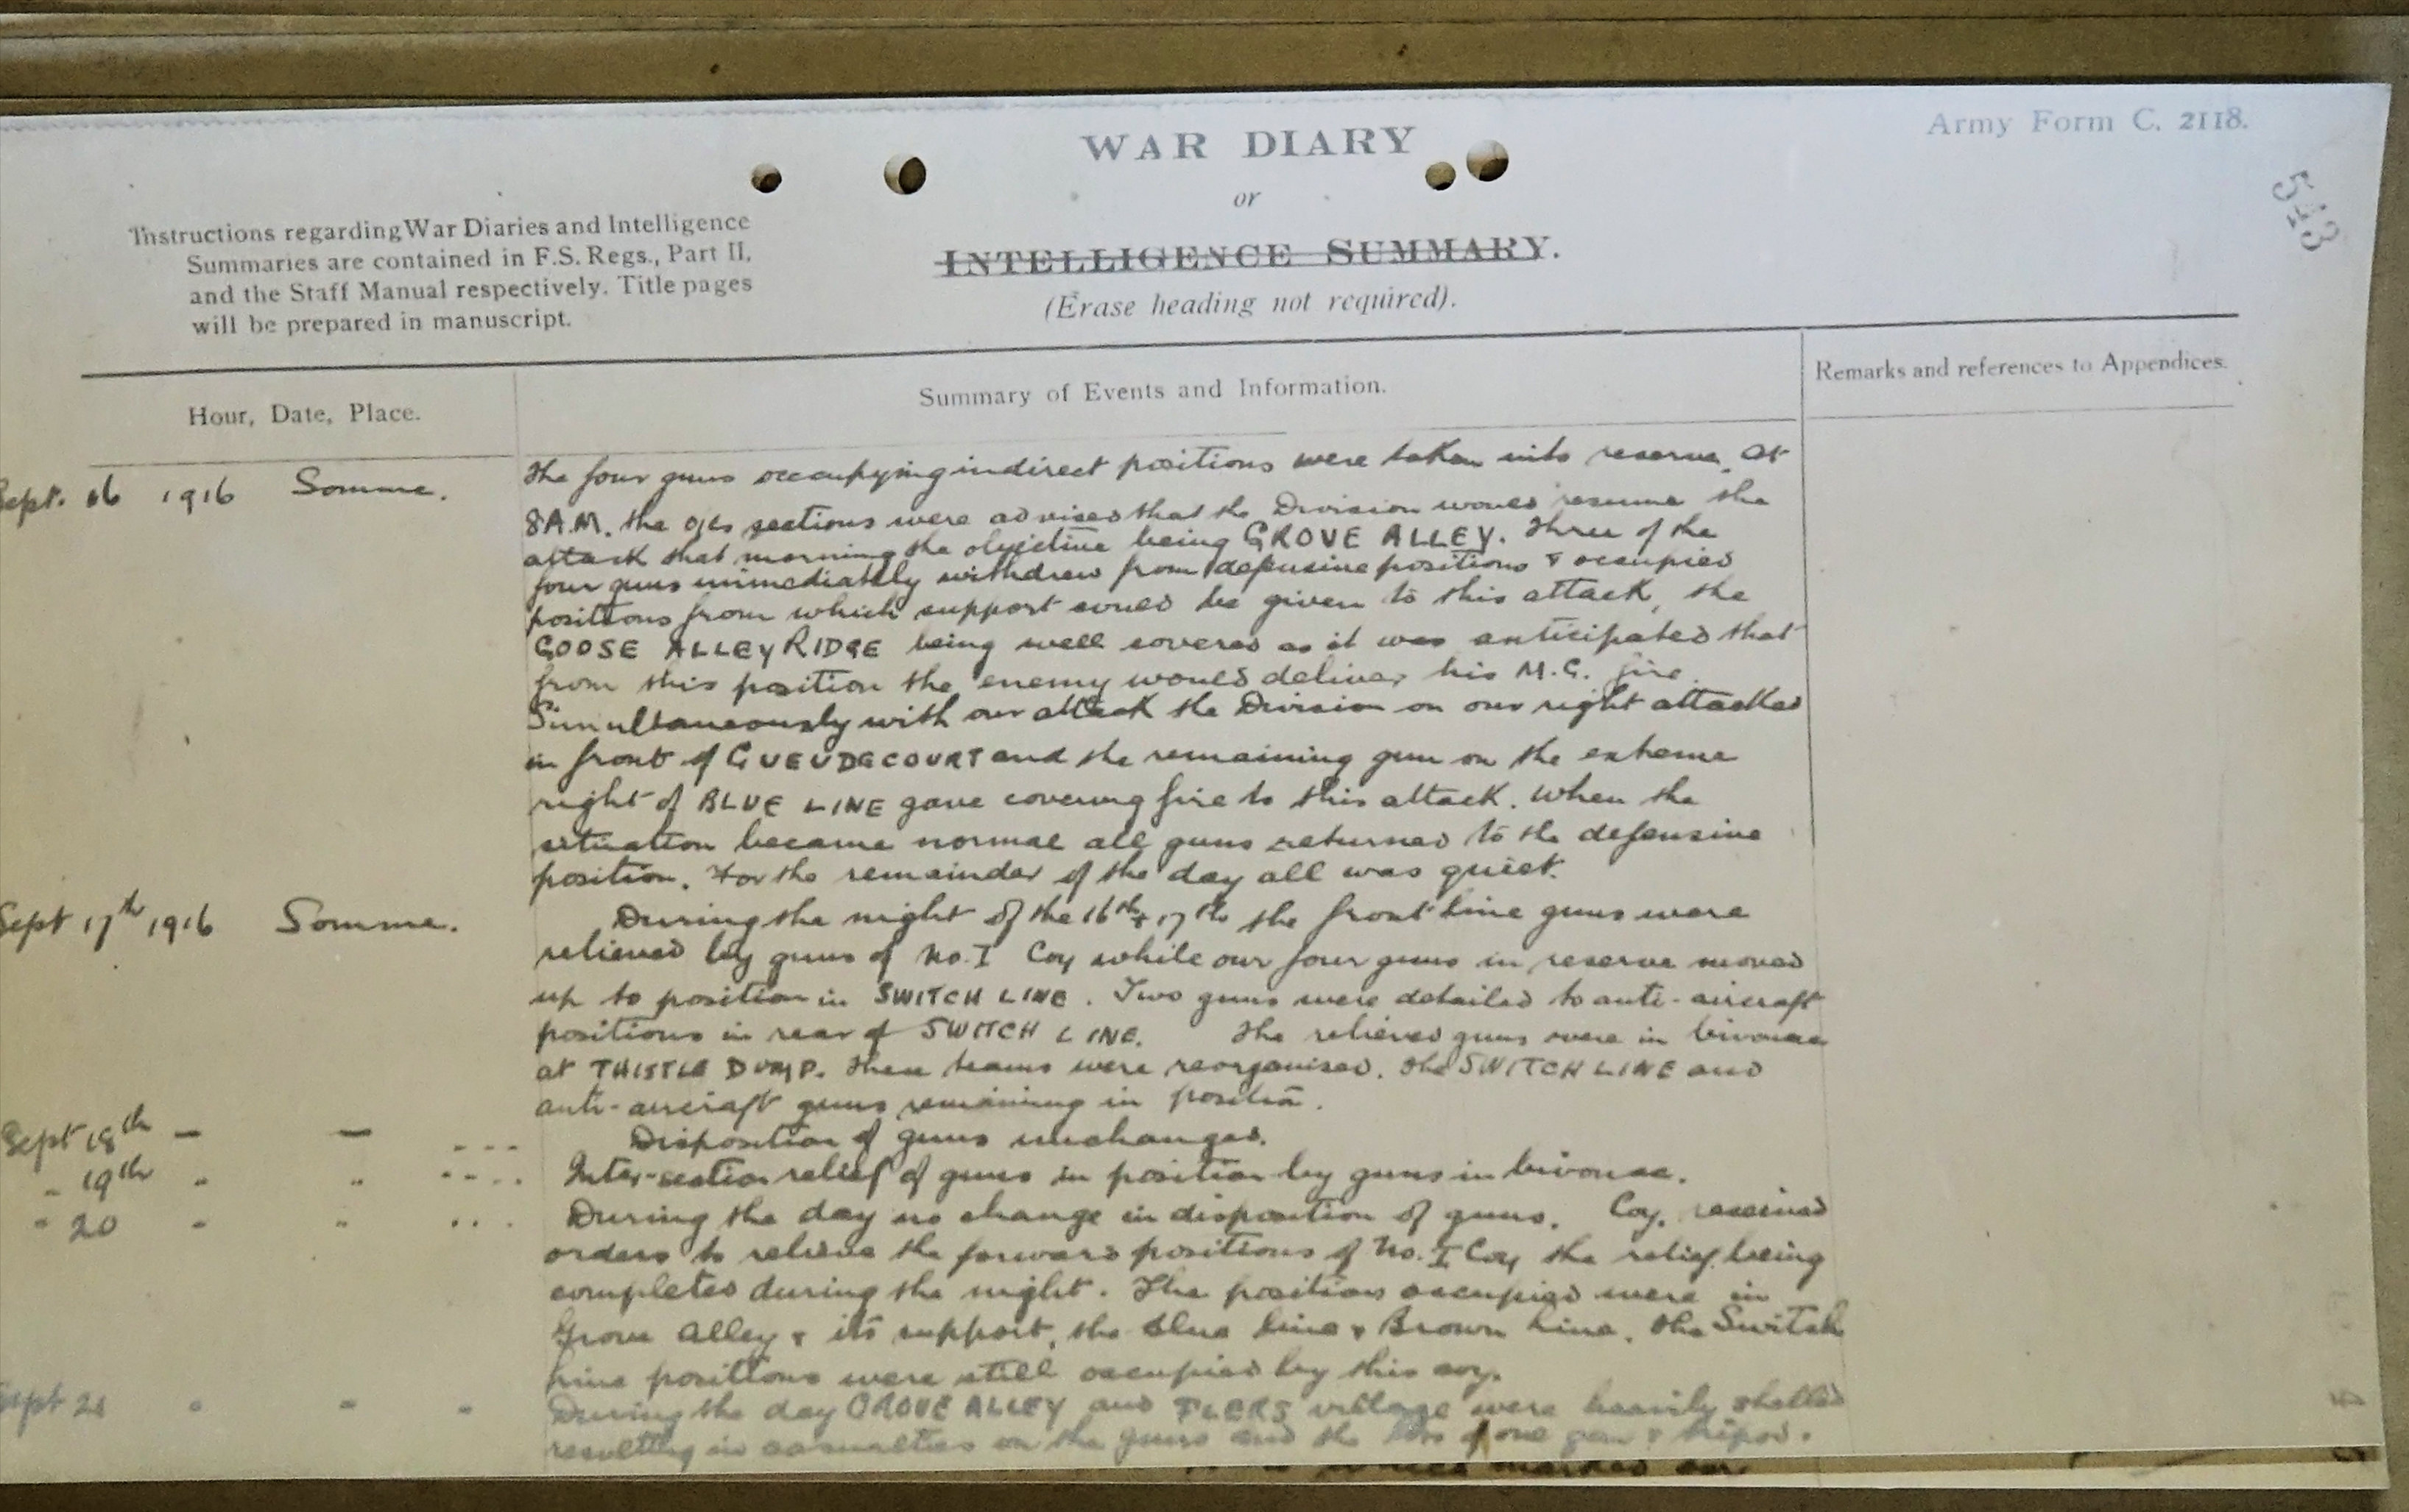 WAR DIARY
or
INTELLIGENCE SUMMARY.
(Erase heading not required).
Army Form C. 2118.
543
Instructions regarding War Diaries and Intelligence
Summaries are contained in F.S. Regs., Part II,
and the Staff Manual respectively. Title pages
will be prepared in manuscript.
Hour, Date, Place.
Summary of Events and Information.
Remarks and references to Appendices.
Sept. 16 1916 Somme.
The four guns occupying indirect positions were taken into reserve. At
8 A.M. the O/Cs sections were advised that the Division would resume the
attack that morning the objective being GROVE ALLEY. Three of the
four guns immediately withdrew from defensive positions & occupied
positions from which support could be given to this attack, the
GOOSE ALLEY RIDGE being well covered as it was anticipated that
from this position the enemy would deliver his M.G. fire.
Simultaneously with our attack the Division on our right attacked
in front of GUEUDECOURT and the remaining gun on the extreme
right of BLUE LINE gave covering fire to this attack. When the
situation became normal all guns returned to the defensive
position. For the remainder of the day all was quiet.
Sept 17th 1916 Somme.
During the night of the 16th & 17th the front line guns were
relieved by guns of No. I Coy while our four guns in reserve moved
up to position in SWITCH LINE. Two guns were detailed to anti-aircraft
positions in rear of SWITCH LINE. The relieved guns were in bivouac
at THISTLE DUMP. These teams were reorganised, the SWITCH LINE and
anti-aircraft guns remaining in position.
Sept 18th — — ---
Disposition of guns unchanged.
" 19th " " ----
Inter-section relief of guns in position by guns in bivouac.
" 20 " " ...
During the day no change in disposition of guns. Coy. received
orders to relieve the forward positions of No. I Coy the relief being
completed during the night. The positions occupied were in
Grove Alley & its support, the Blue line & Brown Line. The Switch
Line positions were still occupied by this coy.
Sept 21 " " "
During the day GROVE ALLEY and FLERS village were heavily shelled
resulting in casualties on the guns and the loss of one gun & tripod.